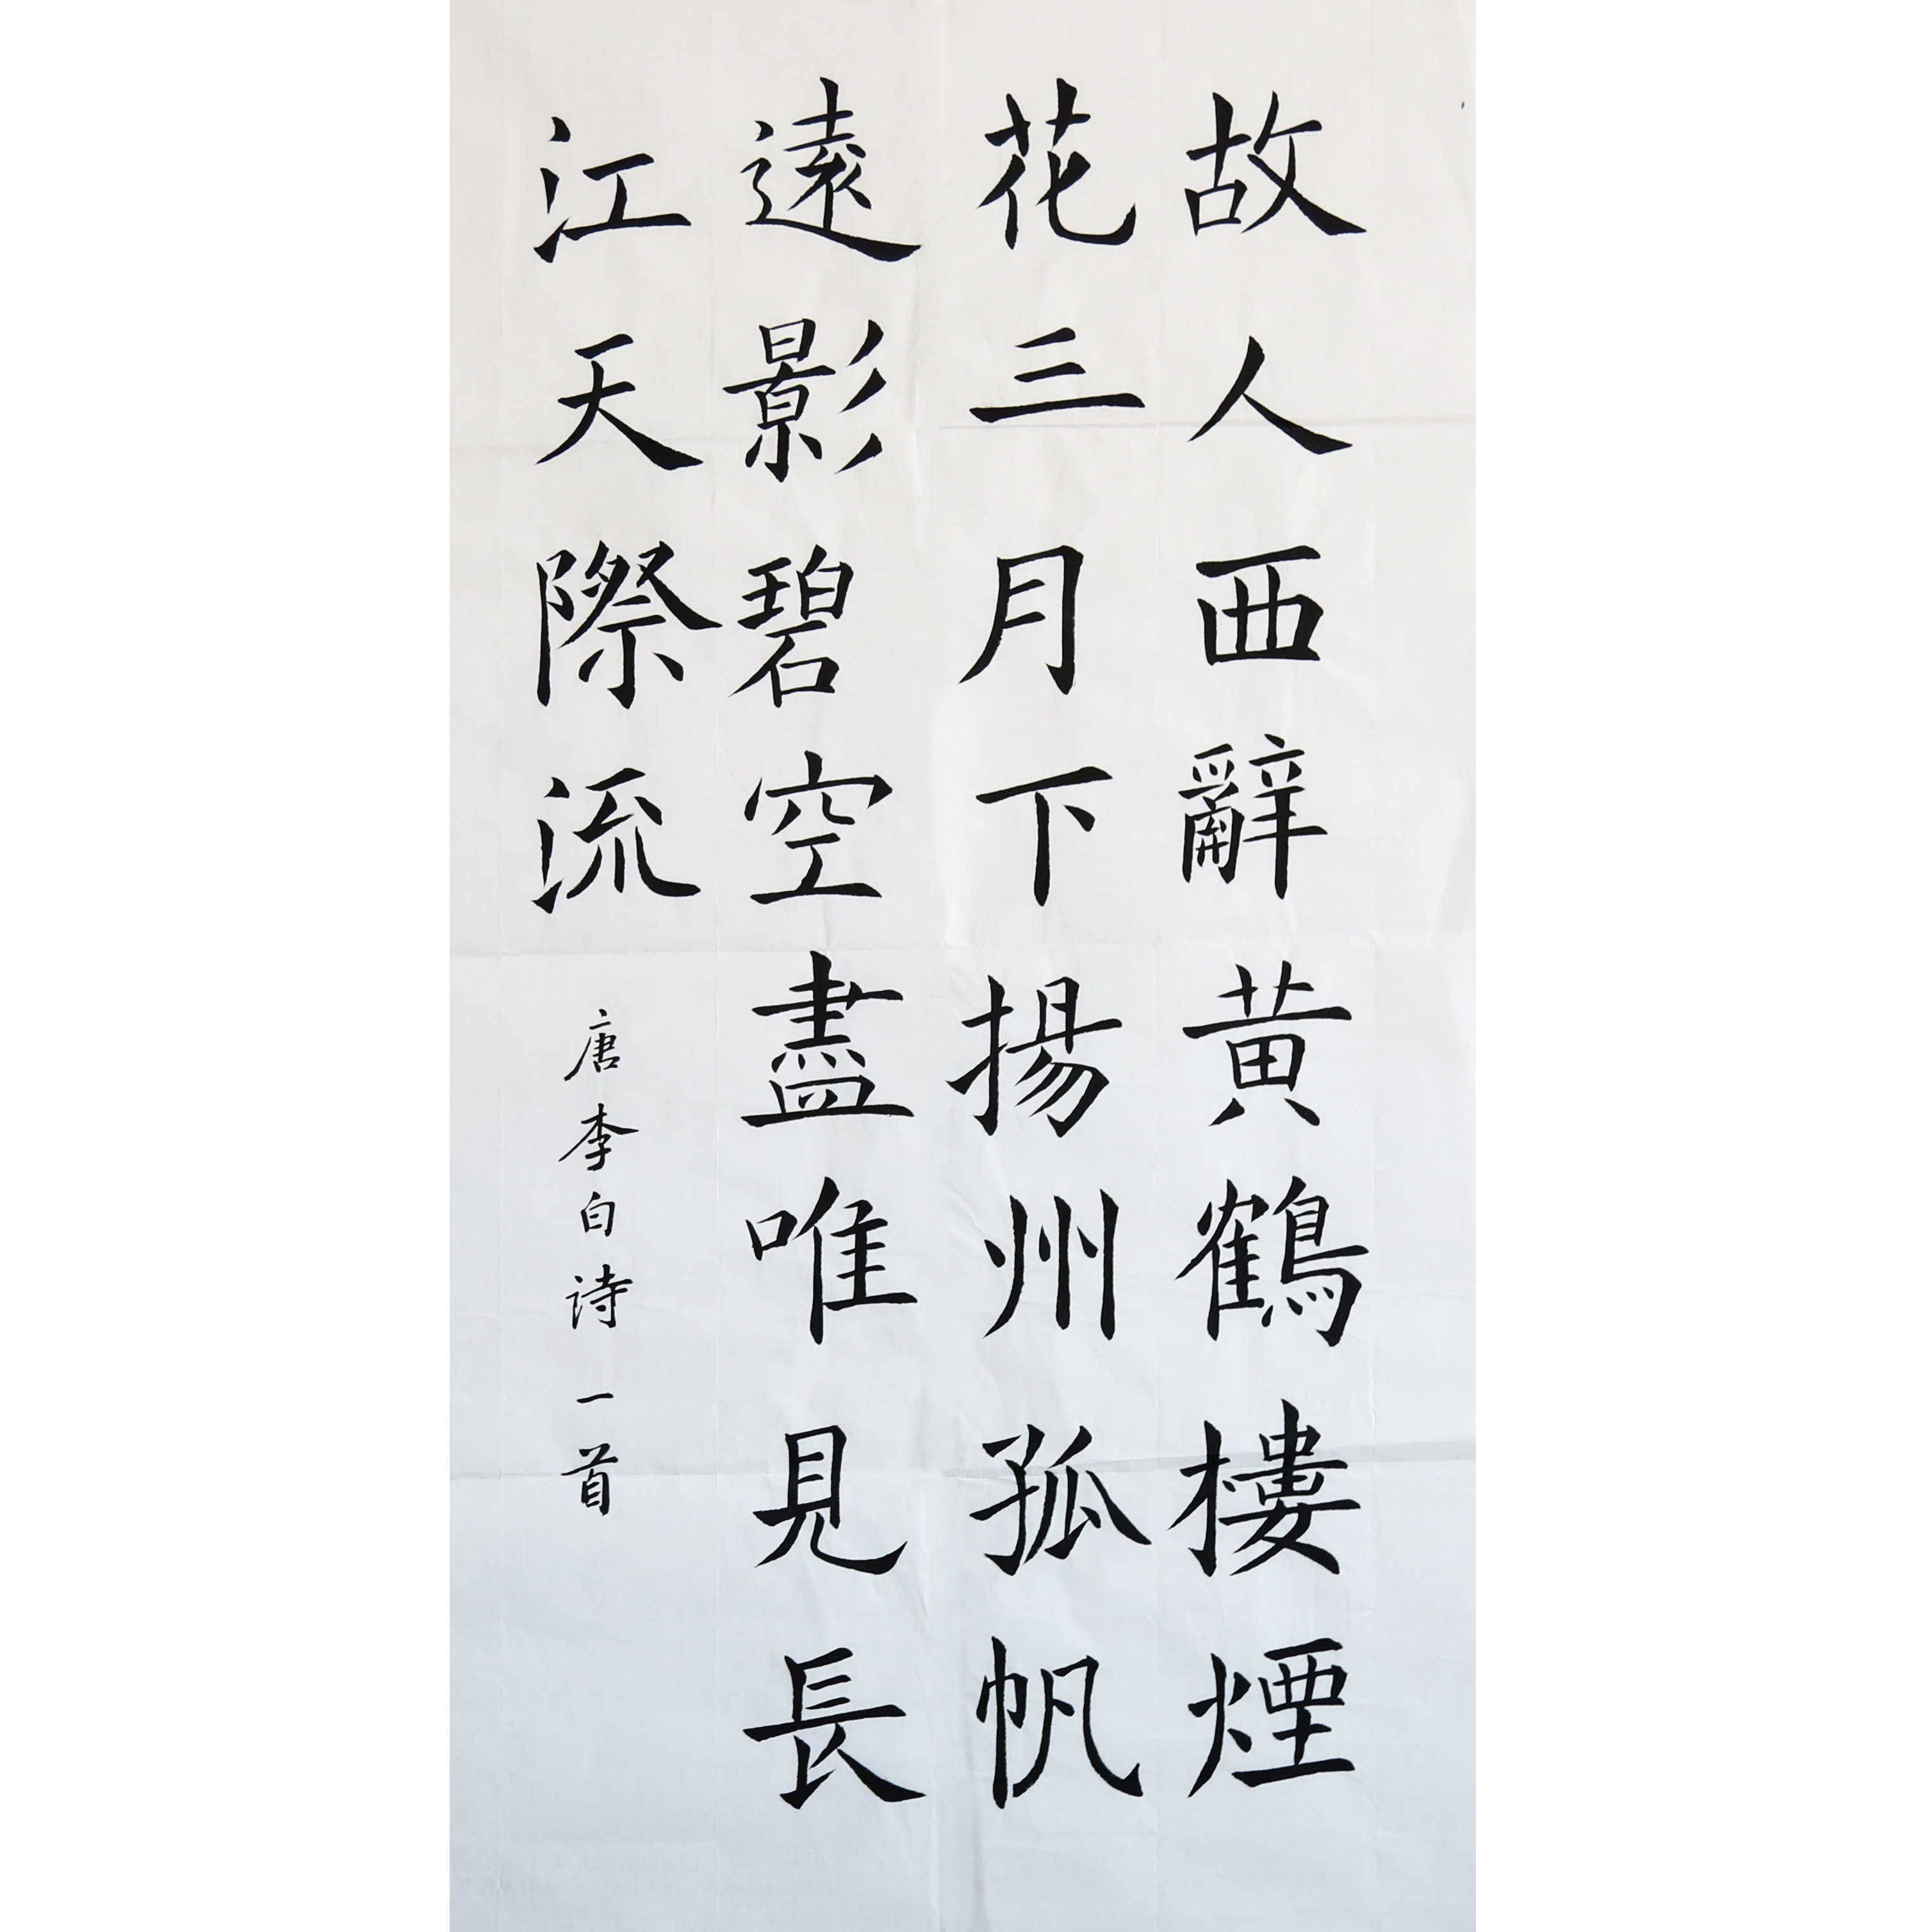 故人西辭黄鶴樓煙
花三月下揚州孤帆
遠影碧空盡唯見長
江天際流
唐李白詩一首